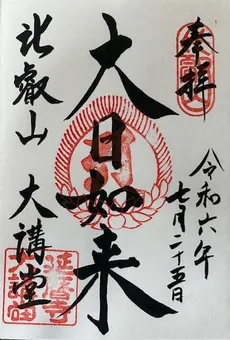 奉拝
令和六年
七月二十五日
大日如来
比叡山 大講堂
延暦寺